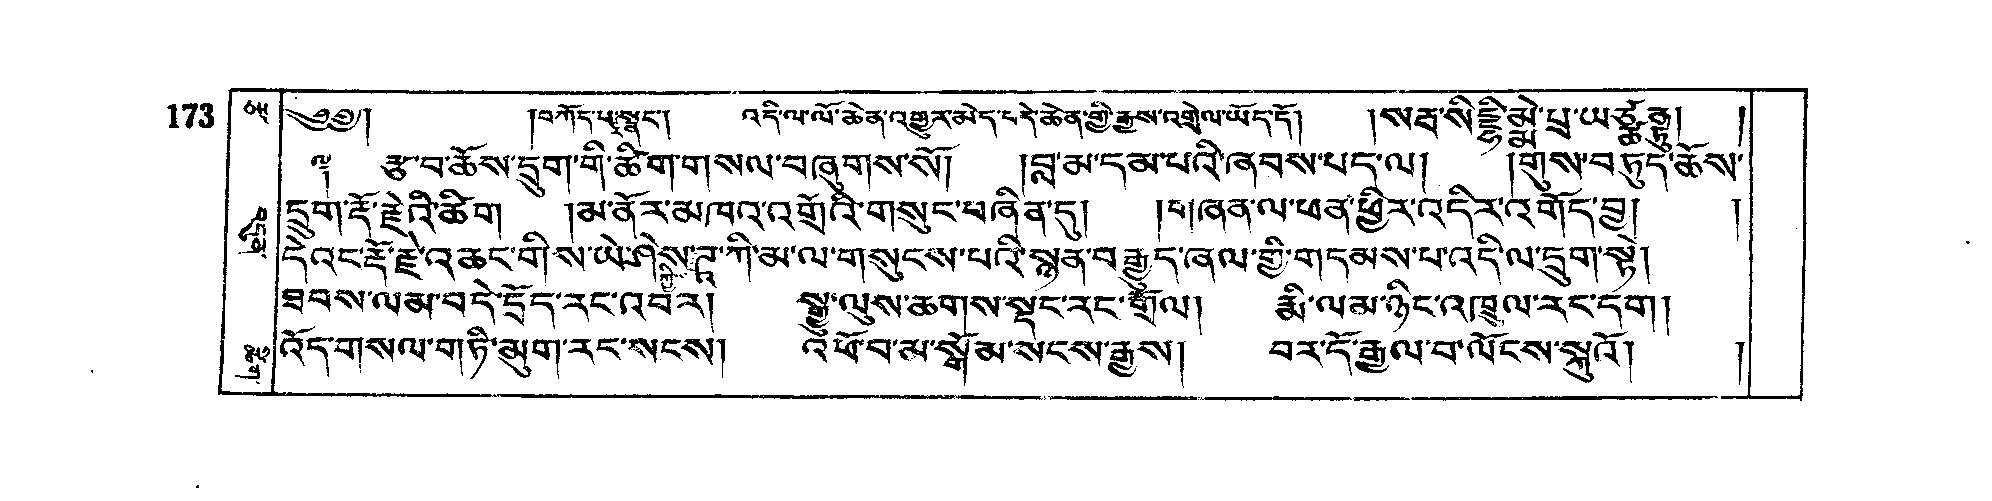 173
༄༅། །བཀོད་པ་སྣང་། འདི་ལ་ལོ་ཆེན་འགྱུར་མེད་བདེ་ཆེན་གྱི་རྒྱས་འགྲེལ་ཡོད་དོ། །སརྦ་སིདྡྷི་མྨེ་པྲ་ཡཙྪནྟུ། །
རྩ་བ་ཆོས་དྲུག་གི་ཚིག་གསལ་བཞུགས་སོ། །བླ་མ་དམ་པའི་ཞབས་པད་ལ། །གུས་བཏུད་ཆོས་
དྲུག་རྡོ་རྗེའི་ཚིག །མ་ནོར་མཁའ་འགྲོའི་གསུང་བཞིན་དུ། །གཞན་ལ་ཕན་ཕྱིར་འདིར་འགོད་བྱ། །
དེའང་རྡོ་རྗེ་འཆང་གིས་ཡེ་ཤེས་ཌཱ་ཀི་མ་ལ་གསུངས་པའི་སྙན་བརྒྱུད་ཞལ་གྱི་གདམས་པ་འདི་ལ་དྲུག་སྟེ།
ཐབས་ལམ་བདེ་དྲོད་རང་འབར། སྒྱུ་ལུས་ཆགས་སྡང་རང་གྲོལ། རྨི་ལམ་ཉིང་འཁྲུལ་རང་དག།
འོད་གསལ་གཏི་མུག་རང་སངས། འཕོ་བ་མ་སྒོམ་སངས་རྒྱས། བར་དོ་རྒྱལ་བ་ལོངས་སྐུའོ། །